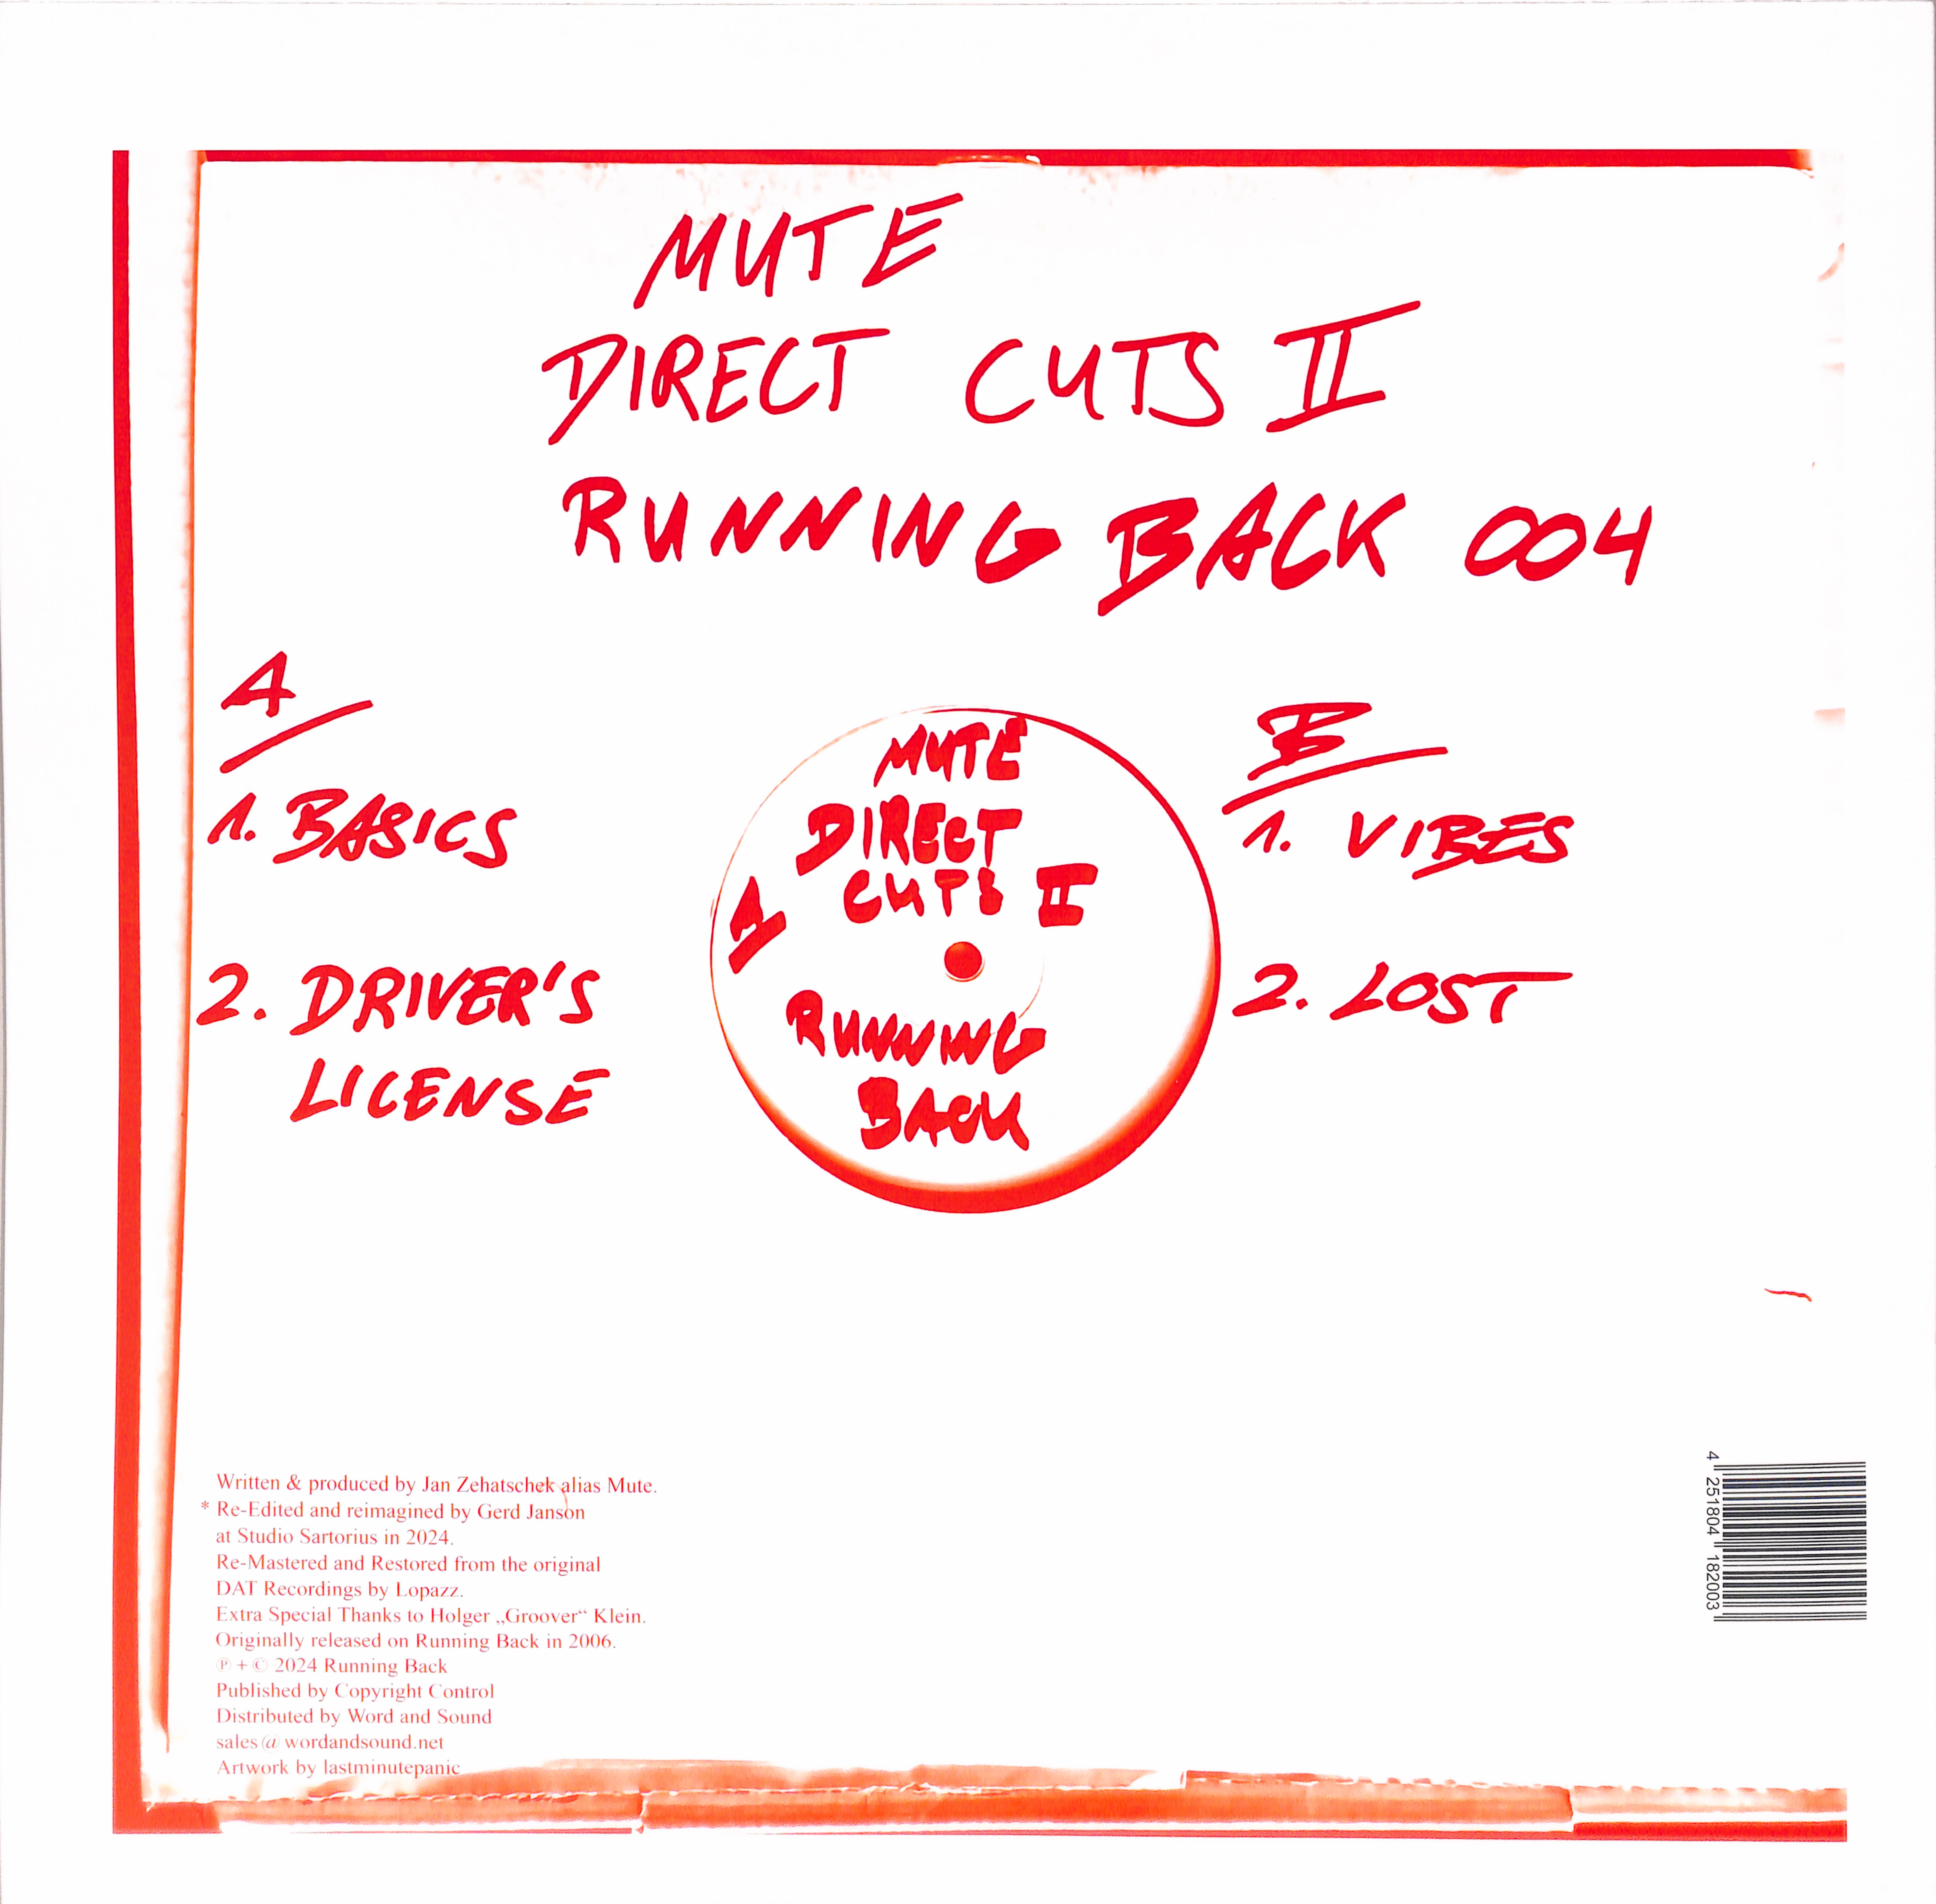 MUTE
DIRECT CUTS II
RUNNING BACK 004
A
1. BASICS
2. DRIVER'S
LICENSE
MUTE
DIRECT
CUTS II
A
RUNNING
BACK
B
1. VIBES
2. LOST
Written & produced by Jan Zehatschek alias Mute.
* Re-Edited and reimagined by Gerd Janson
at Studio Sartorius in 2024.
Re-Mastered and Restored from the original
DAT Recordings by Lopazz.
Extra Special Thanks to Holger „Groover“ Klein.
Originally released on Running Back in 2006.
℗ + © 2024 Running Back
Published by Copyright Control
Distributed by Word and Sound
sales@wordandsound.net
Artwork by lastminutepanic
4 251804 182003